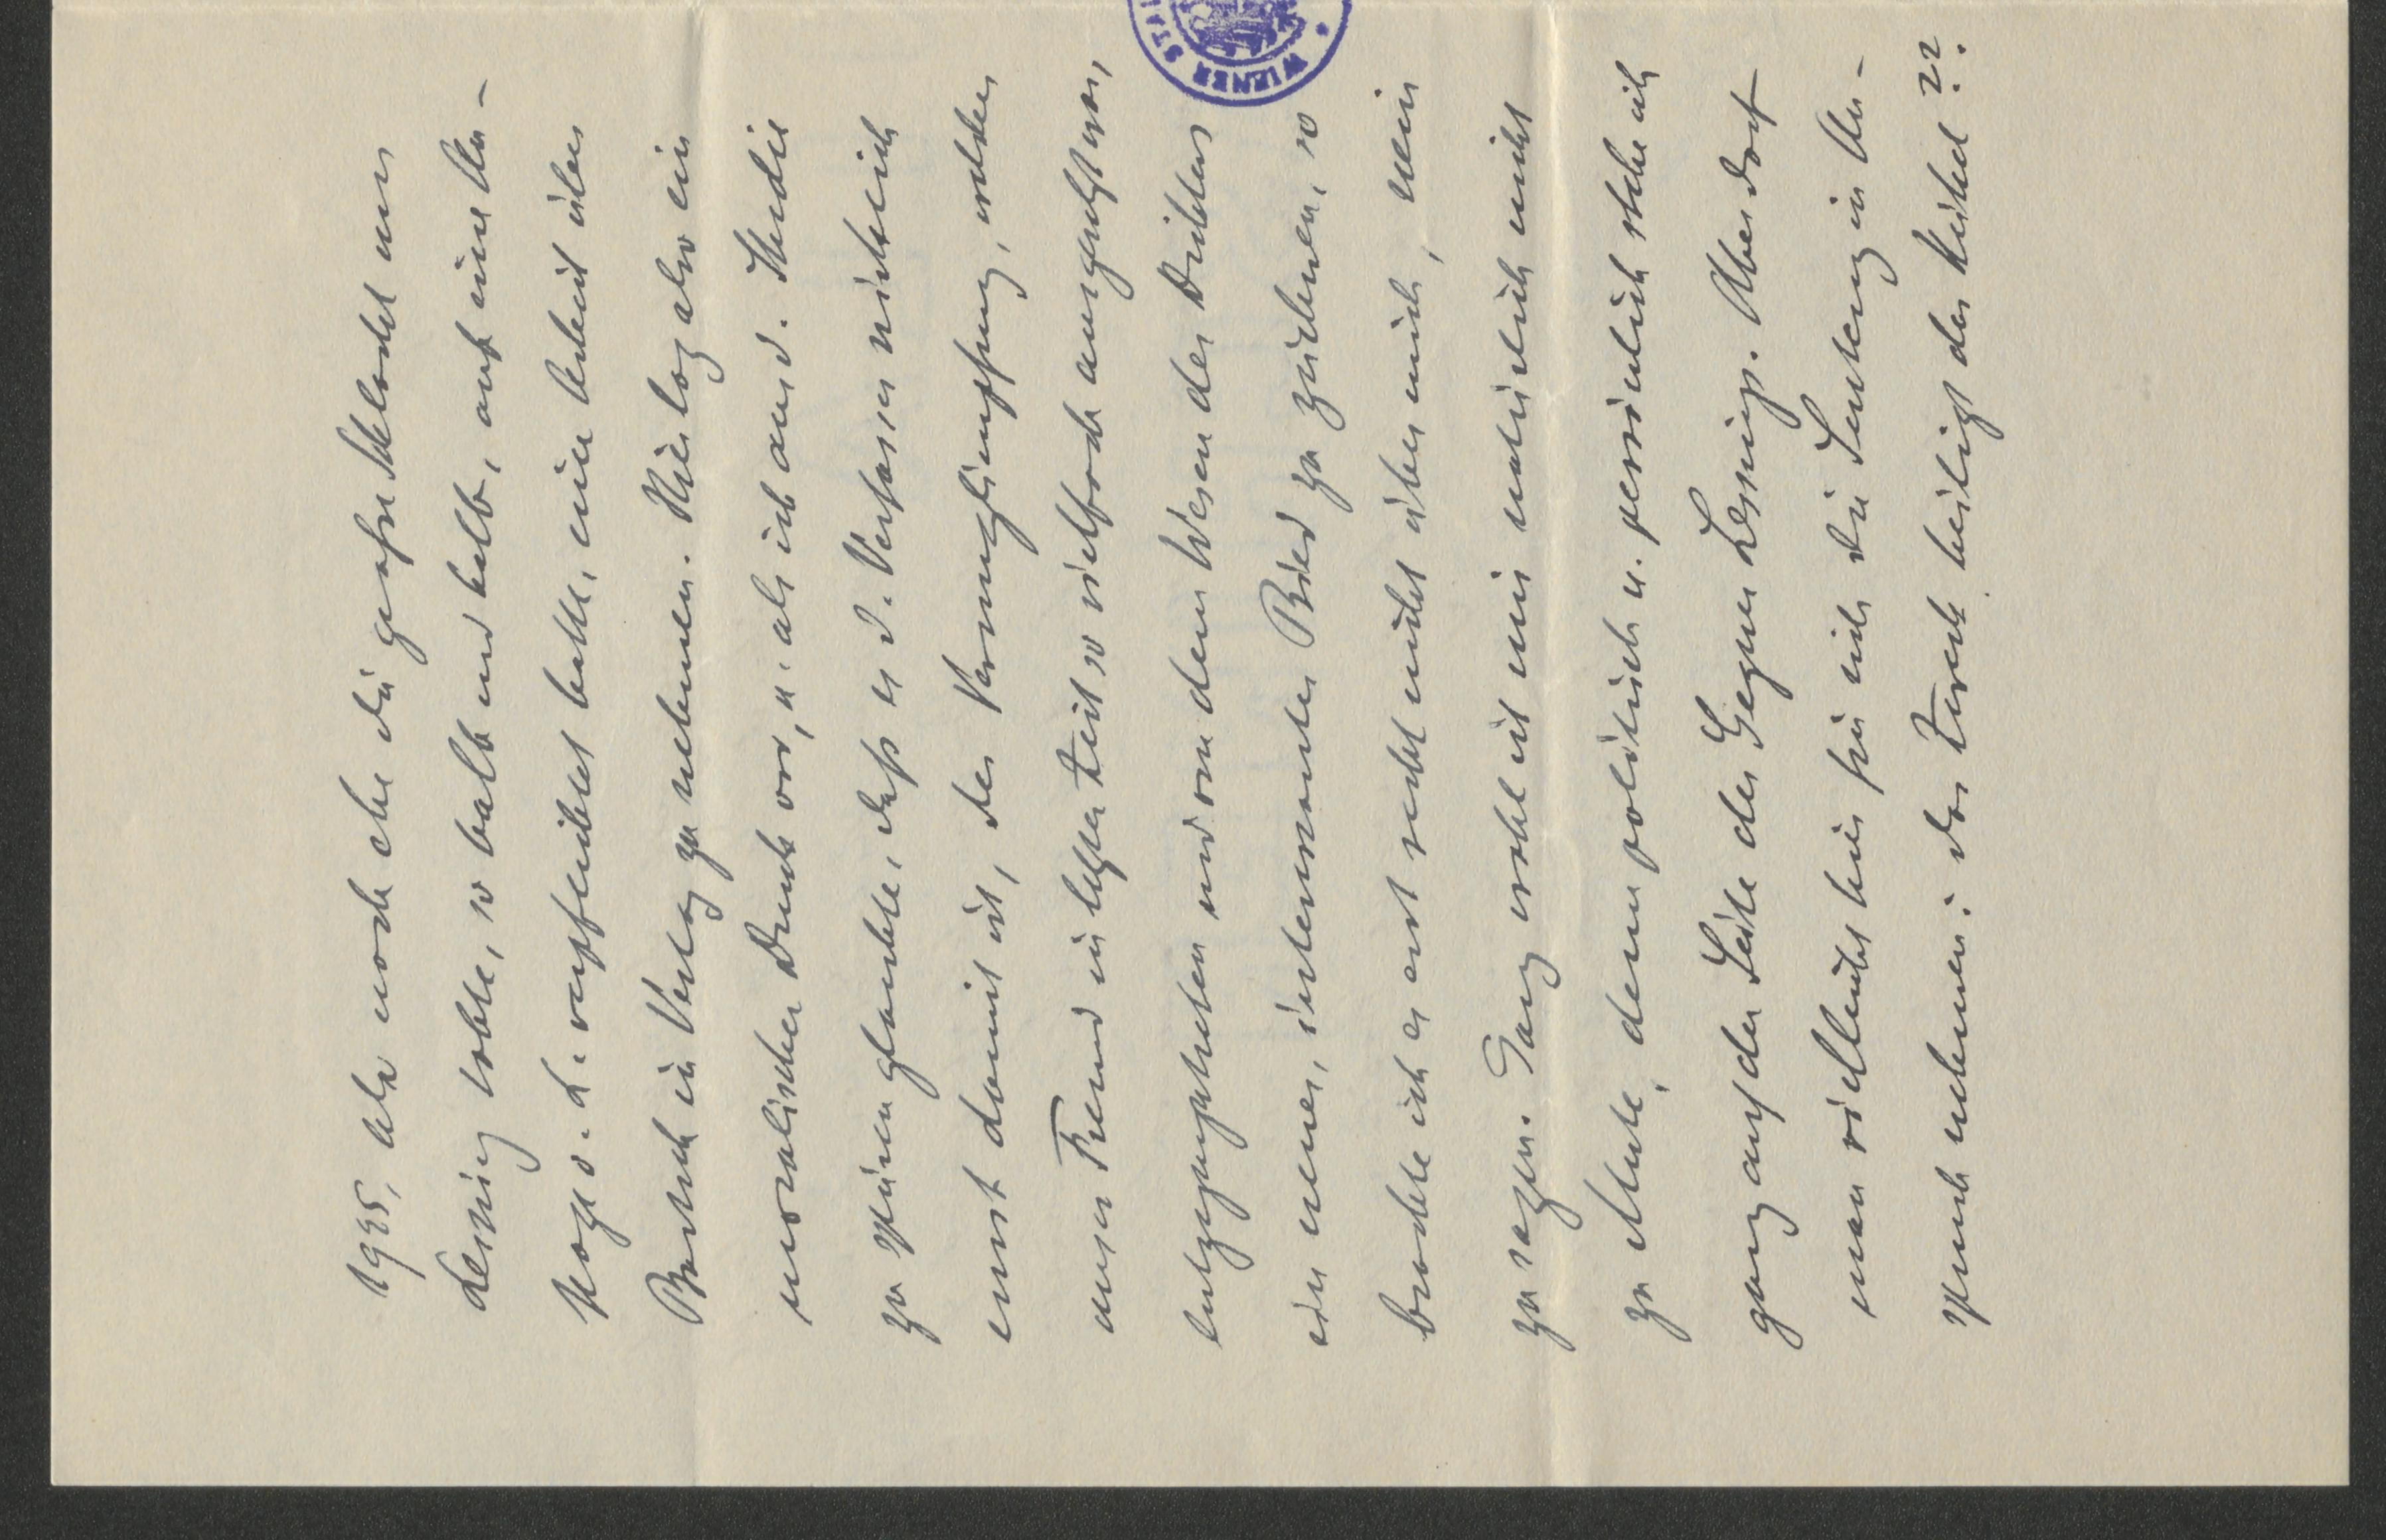 1925, also noch ehe die grosse Schlacht um
Lessing tobte, so halb und halb, auf eine An-
frage d. L. verpflichtet hatte, eine Arbeit über
Bartsch in Verlag zu nehmen. Hier lag also ein
moralischer Druck vor, u. als ich aus d. Studie
zu spüren glaubte, dass es d. Verfasser wirklich
ernst damit ist, der Verunglimpfung, welcher
unser Freund in letzter Zeit so vielfach ausgesetzt war,
entgegenzutreten und von dem Wesen des Dichters
ein neues, interessantes Bild zu zeichnen, so
brachte ich es erst recht nicht über mich, nein
zu sagen. Ganz wohl ist mir natürlich nicht
zu Mute, denn politisch u. persönlich stehe ich
ganz auf der Seite der Gegner Lessings. Aber darf
man vielleicht hier für sich die Sentenz in An-
spruch nehmen: der Zweck heiligt das Mittel??
WIENER STA